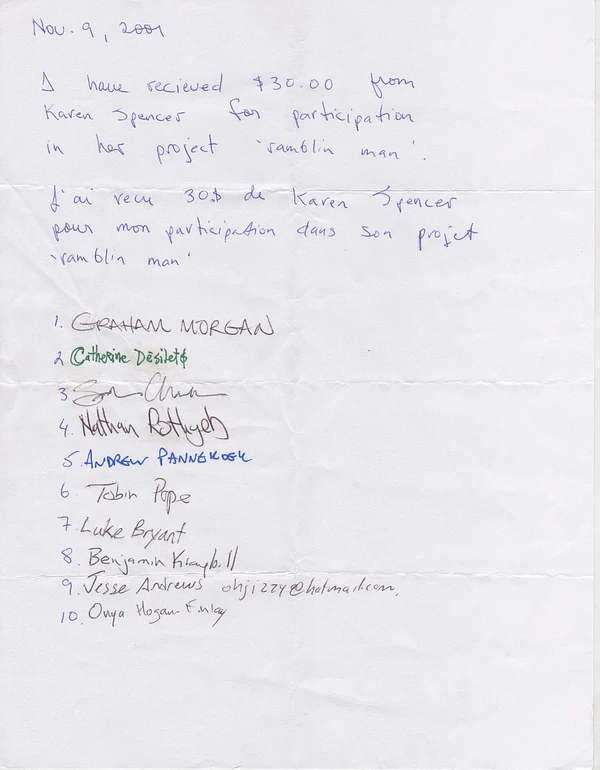 Nov. 9, 2001
I have recieved $30.00 from
Karen Spencer for participation
in her project 'ramblin man'.
J'ai recu 30$ de Karen Spencer
pour mon participation dans son projet
'ramblin man'
1. GRAHAM MORGAN
2 Catherine Desilets
3
4. Nathan
5. ANDREW PANNEKOEK
6 Tobin Pope
7. Luke Bryant
8. Benjamin Kraybill
9. Jesse Andrews ohjizzy@hotmail.com.
10. Onya Hogan Finlay